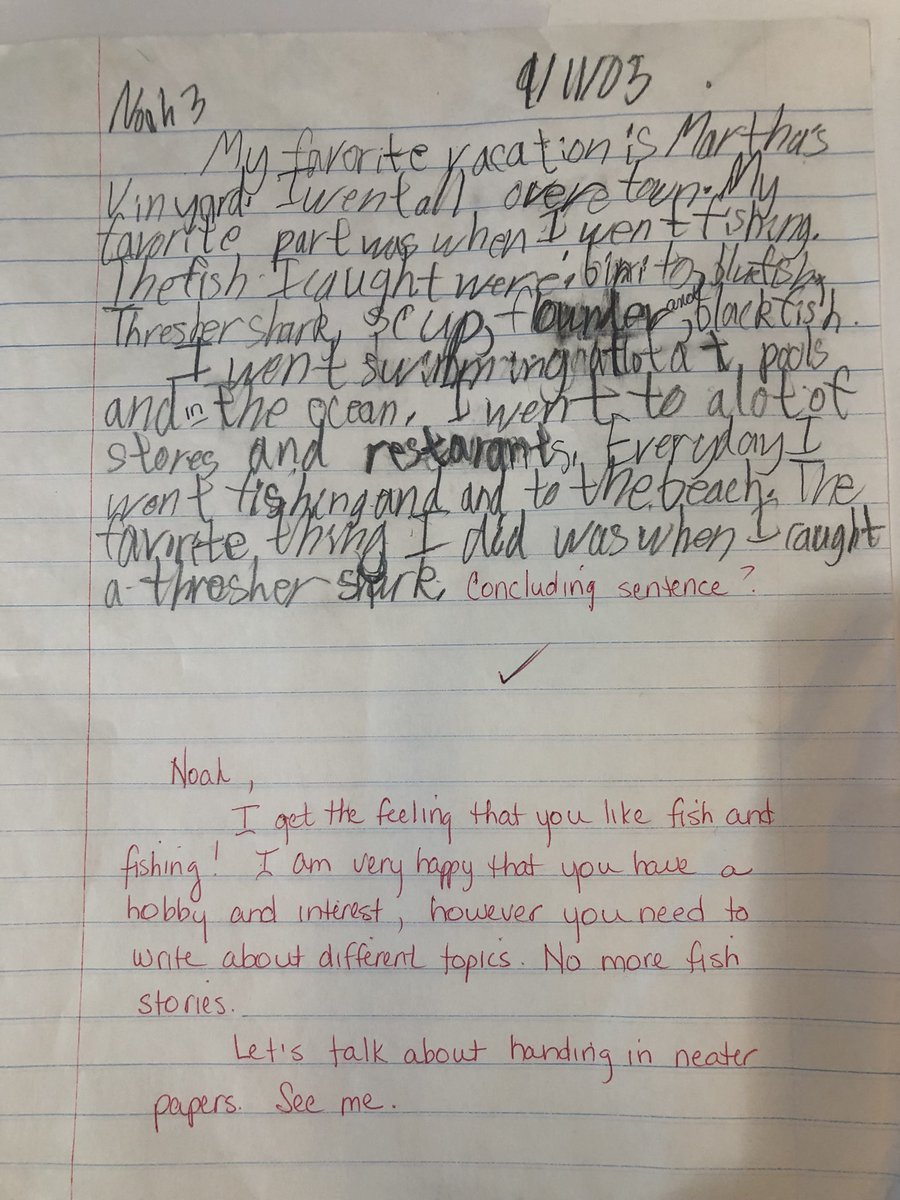 Noah 3 9/11/03
My favorite vacation is Martha's
Vinyard. I went all over town. My
favorite part was when I went fishing.
The fish I caught were; binito, bluefish,
Thresher shark, scup, flounder, and blackfish.
I went swimming alot at pools
and in the ocean. I went to a lot of
stores and restarants. Everyday I
went fishing and and to the beach. The
favorite thing I did was when I caught
a thresher shark. Concluding sentence?
Noah,
I get the feeling that you like fish and
fishing! I am very happy that you have a
hobby and interest, however you need to
write about different topics. No more fish
stories.
Let's talk about handing in neater
papers. See me.